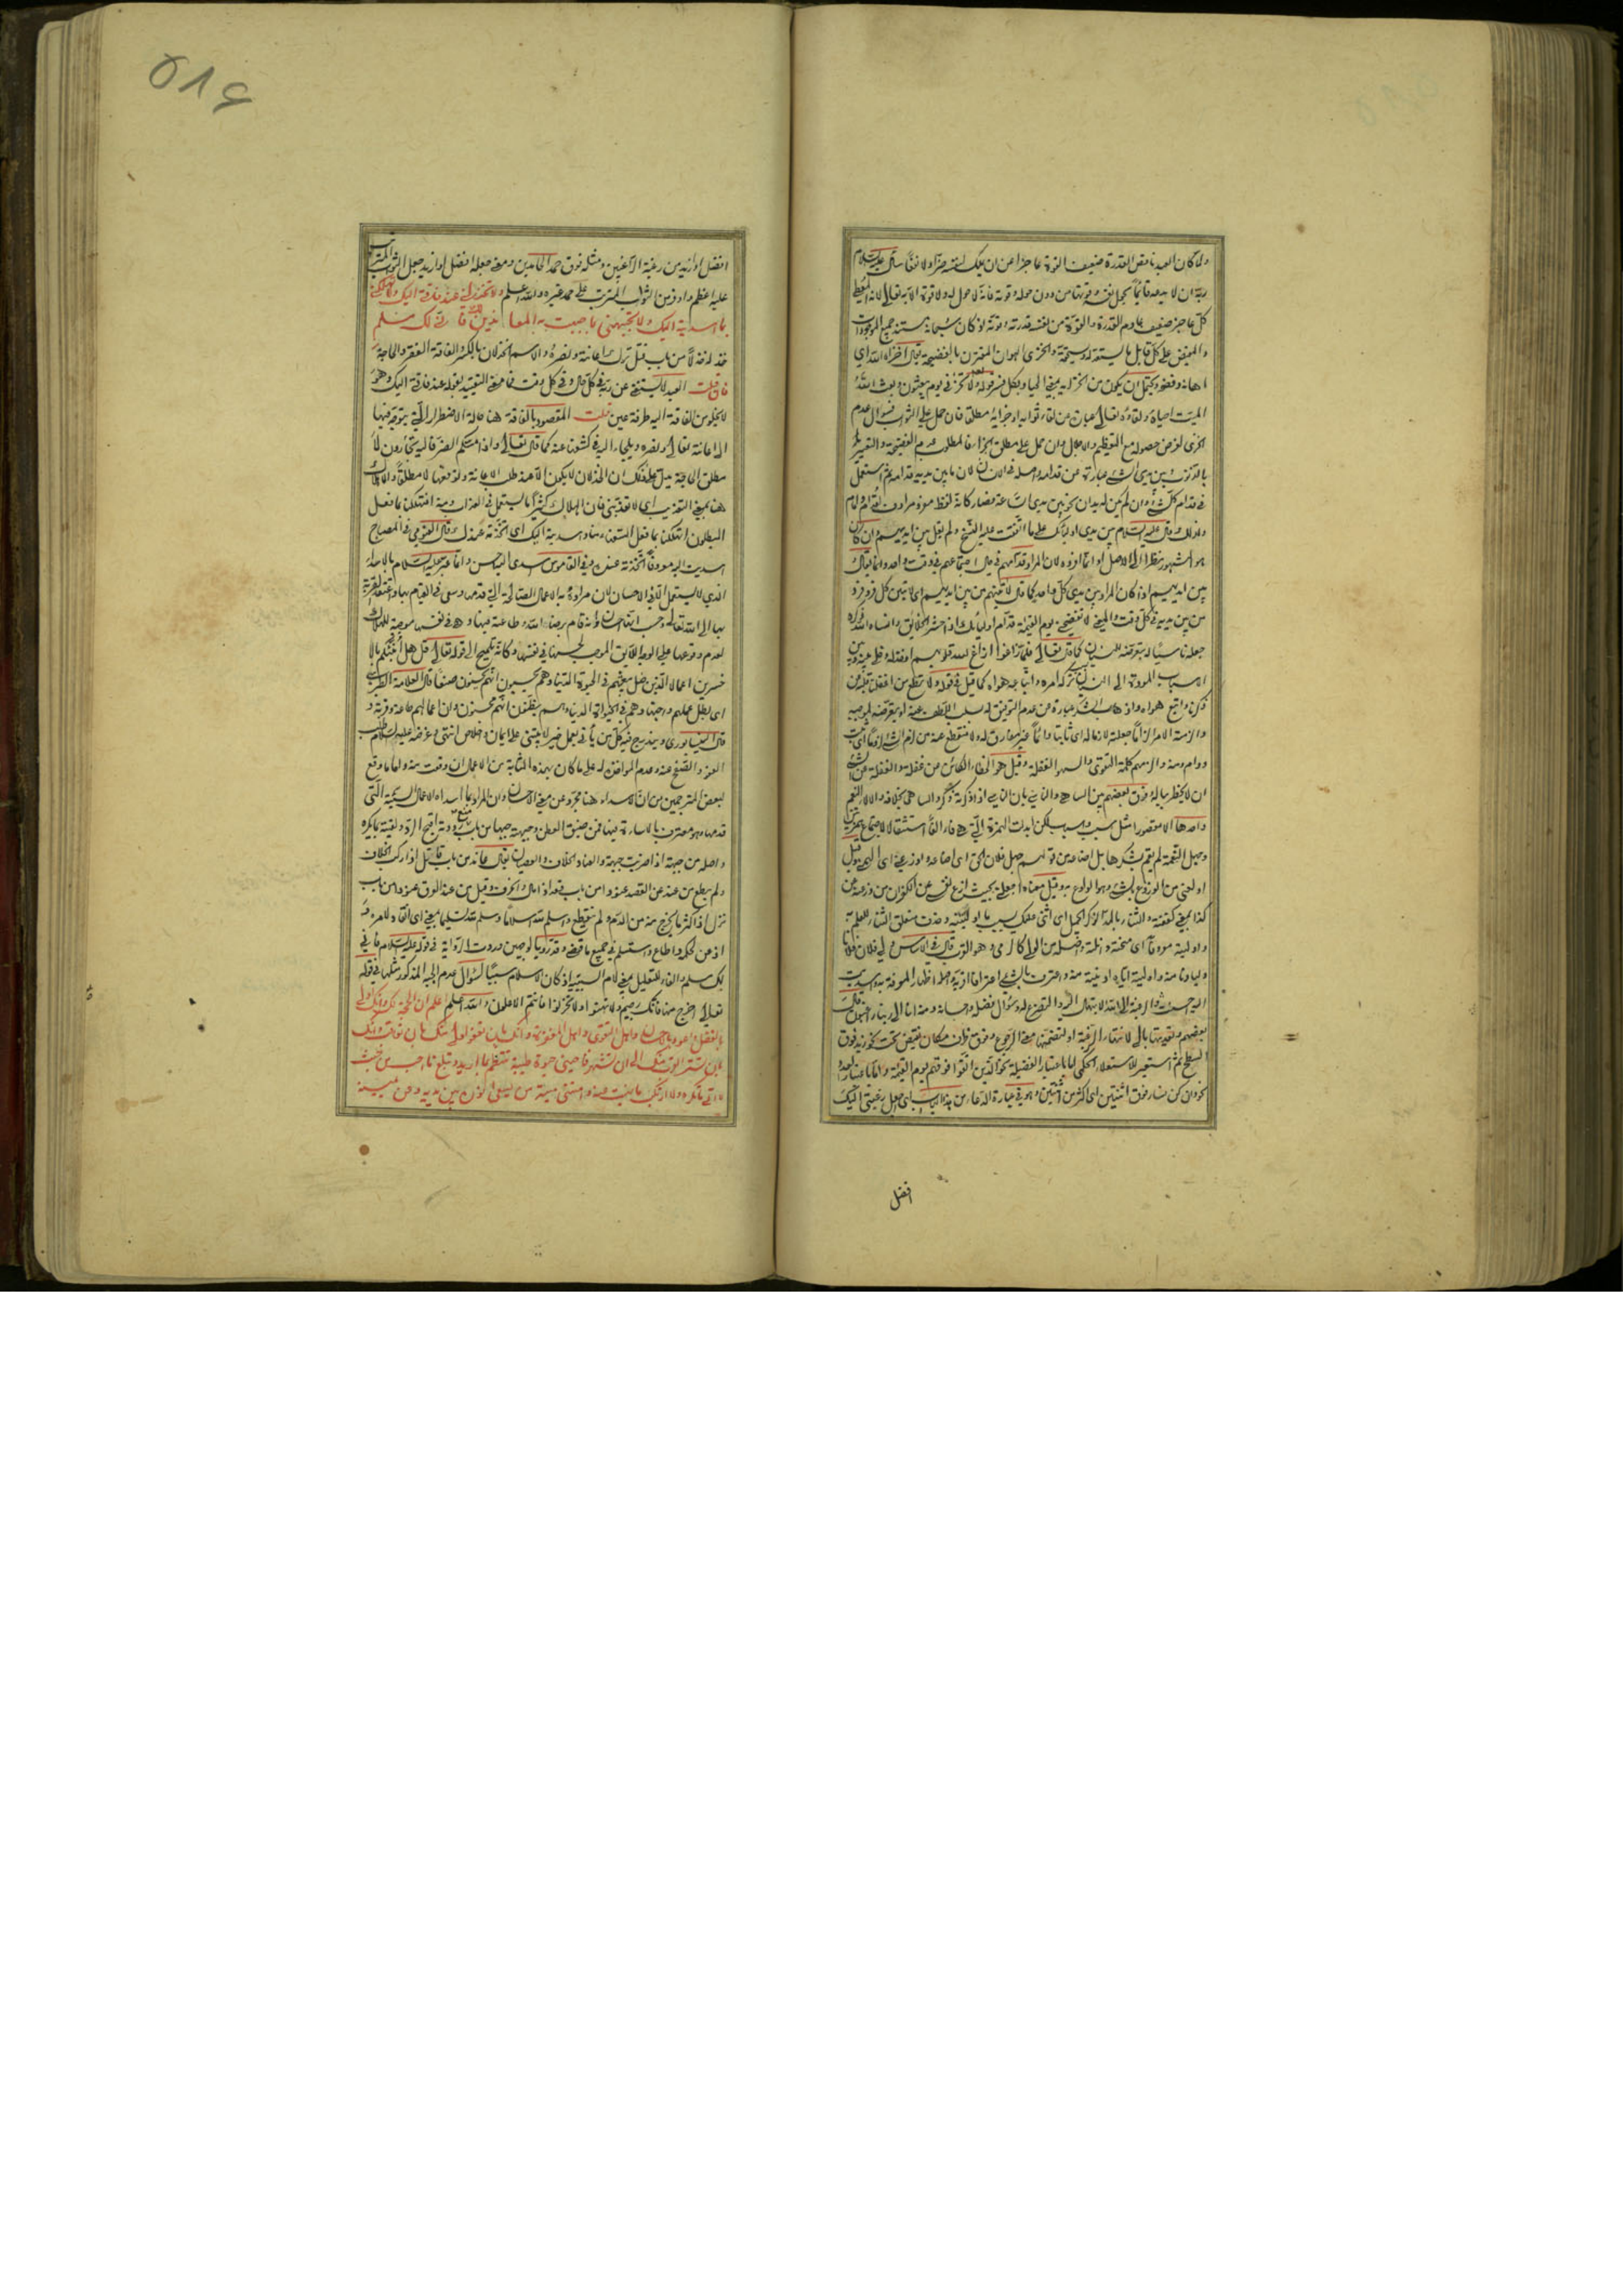 ولما كان العبد ناقص القدرة ضعيف القوة عاجزا عن ان يملك لنفسه ضرا ولا نفعا سأل عليه السلام
ربه ان لا يدعه قائما بحمل نفسه وقوتها من دون حوله وقوته فانه لا حول له ولا قوة الا به تعالى لانه المعطي
كل عاجز ضعيف عادم القدرة والقوة من نفسه قدرته وقوته اذ كان سبحانه مستند جميع الموجودات
والمفيض على كل قابل ما يستعد له ويستحقه والخزي الهوان المقترن بالفضيحة يقال اخزاه الله اي
اهانه وفضحه ويحتمل ان يكون من الخزاية بمعنى الحياء وبكل فسر قوله تعالى ولا تخزني يوم يبعثون وبعث الله
الميت احياه ولقاؤه تعالى عبارة عن لقاء ثوابه او جزائه مطلقا فان حمل على الثواب فسؤال عدم
الخزي لغرض حصوله مع التعظيم والاجلال وان حمل على مطلق الجزاء فالمطلوب عدم الفضيحة والتعيير
بالذنوب بين يدي الشيء عبارة عن قدامه واصله في الانسان لان ما بين يديه قدامه ثم استعمل
في قدام كل شيء وان لم يكن له يدان نحو بين يدي الساعة فصار كانه لفظ مفرد مرادف لقدام وامام
ولذلك قال عليه السلام بين يدي اوليائك على ما اتفقت عليه النسخ ولم يقل بين ايديهم وان كان
هو المشهور نظرا الى الاصل او انما افرده لان المراد قدامهم في حال اجتماعهم في وقت واحد وانما يقال
بين ايديهم اذا كان المراد بين يدي كل واحد كما قال لاتينهم من بين ايديهم اي لاتين كل فرد فرد
من بين يديه في كل وقت والمعنى لا تفضحني يوم القيمة قدام اوليائك اذا حشر الخلائق وانساه الله ذكره
جعله ناسيا له بتعرضه للنسيان كما قال تعالى فلما زاغوا ازاغ الله قلوبهم او خذله وخلى بينه وبين
الاسباب المودية الى النسيان بتركه امره واتباعه هواه كما قيل في قوله ولا تطع من اغفلنا قلبه عن
ذكرنا واتبع هواه واذهاب الشكر عبارة عن عدم التوفيق له بسلب اللطف عنه او بتعرضه لموجبه
والزمته الامر الزاما جعلته لازما له اي ثابتا دائما غير مفارق له ولا منقطع عنه من لزم الشيء لزوما اي ثبت
ودام ومنه والزمهم كلمة التقوى والسهو الغفلة وقيل هو الخفاء الكائن من غفلة والغفلة عن الشيء
ان لا يخطر بباله وفرق بعضهم بين الساهي والناسي بان الناسي اذا ذكرته ذكر والساهي بخلافه والالاء النعم
واحدها الا مقصورا مثل سبب واسباب لكن ابدلت الهمزة التي هي فاء الفا استثقالا لاجتماع همزتين
وجهل النعمة لم يقم بشكرها بل اضاعها من قولهم جهل فلان الحق اي اضاعه واوزعني اي الهمني وقيل
اولعني من الوزوع بالشيء وهو الولوع به وقيل معناه اجعلني بحيث ازع نفسي عن الكفران من وزعته عن
كذا بمعنى كففته والثناء بالمد الذكر الجميل اي اثني عليك بسبب ما اوليتنيه وحذف متعلق الثناء للعلم به
واوليته معروفا اي منحته واصله واصله من الولي كالرمي وهو القرب قال في الاساس ولي فلان فلانا
وليا دنا منه واوليته اياه ادنيته منه واعترف بالشيء اعترافا اقر به واصله اظهار المعرفة به واسديت
اليه احسنت والرغبة الى الله الابتهال اليه والتضرع له وسؤال فضله واحسانه ومنه انا الى ربنا راغبون قال
بعضهم وتعديتها بالى لاشعار الرغبة او لتضمنها معنى الرجوع وفوق ظرف مكان نقيض تحت نحو زيد فوق
السطح ثم استعير للاستعلاء الحكمي اما باعتبار الفضيلة نحو والذين اتقوا فوقهم يوم القيمة واما باعتبار العدد
نحو فان كن نساء فوق اثنتين اي اكثر من اثنتين وهو في عبارة الدعاء من هذا الباب اي اجعل رغبتي اليك
افضل
٥٨٦
افضل او ازيد من رغبة الراغبين ومثله فوق حمد الحامدين ومعنى جعله افضل او ازيد جعل الثواب المترتب
عليه اعظم واوفر من الثواب المترتب على حمد غيره والله اعلم ولا تخذلني عند فاقتي اليك ولا تهلكني
بما اسديته اليك ولا تجبهني بما جبهت به المعاندين لك فاني لك مسلم
خذله خذلا من باب قتل ترك اعانته ونصره والاسم الخذلان بالكسر الفاقة الفقر والحاجة
فان قلت العبد لا يستغني عن ربه في كل حال وفي كل وقت فما معنى التقييد بقوله عند فاقتي اليك وهو
لا يخلو من الفاقة اليه طرفة عين قلت المقصود بالفاقة هنا حالة الاضطرار التي يتوجه فيها
الى اعانته تعالى ونصره ويلجاء اليه في كشفها عنه كما قال تعالى واذا مسكم الضر فاليه تجأرون لا
مطلق الحاجة يدل على ذلك ان الخذلان لا يكون الا عند طلب الاعانة وتوقعها لا مطلقا والاهلاك
هنا بمعنى التعذيب اي لا تعذبني فان الهلاك كثيرا ما يستعمل في العذاب ومنه افتهلكنا بما فعل
المبطلون اتهلكنا بما فعل السفهاء منا واسديته اليك اي اتخذته عندك قال الفيومي في المصباح
اسديت اليه معروفا اتخذته عنده وفي القاموس اسدى اليه احسن وانما عبر عليه السلام بالاسداء
الذي لا يستعمل الا في الاحسان لان مراده به الاعمال الصالحة التي قدمها وسعى في القيام بها واعتقد القربة
بها الى الله تعالى وحسب اتقانها له ظنا انه قام برضاء الله وطاعته فيها وهي في نفسها موجبة للهلاك
لعدم وقوعها على الوجه اللائق الموجب لحسنها في نفسها وكانه تلميح الى قوله تعالى قل هل انبئكم بالا
خسرين اعمالا الذين ضل سعيهم في الحيوة الدنيا وهم يحسبون انهم يحسنون صنعا قال العلامة الطبرسي
اي بطل عملهم واجتهادهم في الحيوة الدنيا وهم يظنون انهم محسنون وان اعمالهم طاعة وقربة و
قال النيسابوري ويندرج فيه كل من يأتي بعمل خير لا يبتني على ايمان واخلاص انتهى وغرضه عليه السلام طلب
العفو والصفح عنه وعدم المؤاخذة له على ما كان بهذه المثابة من الاعمال ان وقعت منه واما ما وقع
لبعض المترجمين من ان الاسداء هنا مجرد عن معنى الاحسان وان المراد بما اسداه الاعمال السيئة التي
قدمها وهو معترف بالاساءة فيها فمن ضيق العطن وجبهته جبها من باب منع رددته اقبح الرد ولقيته بما يكره
واصله من جبهته اذا ضربت جبهته والعناد الخلاف والعصيان يقال عاند من باب قاتل اذا ركب الخلاف
ولم يطع من عند عن القصد عنودا من باب قعد اذا مال وانحرف وقيل من عند العرق عنودا من باب
نزل اذا كثر ما يخرج منه من الدم ولم ينقطع واسلم لله اسلاما وسلم لله تسليما بمعنى اي انقاد لامره و
اذعن لحكمه واطاع واستسلم في جميع ما قضى وقدر وبالوجهين وردت الرواية في قوله عليه السلام فاني
لك مسلم والفاء للتعليل بمعنى لام السببية اذ كان الاسلام سببا لسؤال عدم الجبه المذكور مثلها في قوله
تعالى اخرج منها فانك رجيم ولا تهنوا ولا تحزنوا فانتم الاعلون والله اعلم اعلم ان الحجة لك وانك اولى
بالفضل واعود بالاحسان واهل التقوى واهل المغفرة وانك بان تعفو اولى منك بان تعاقب وانك
بان تستر اقرب منك الى ان تشهر فاحيني حيوة طيبة تنتظم بما اريد وتبلغ ما احب من حيث
لا اتي ما تكره ولا ارتكب ما نهيت عنه وامتني ميتة من يسعى نوره بين يديه وعن يمينه